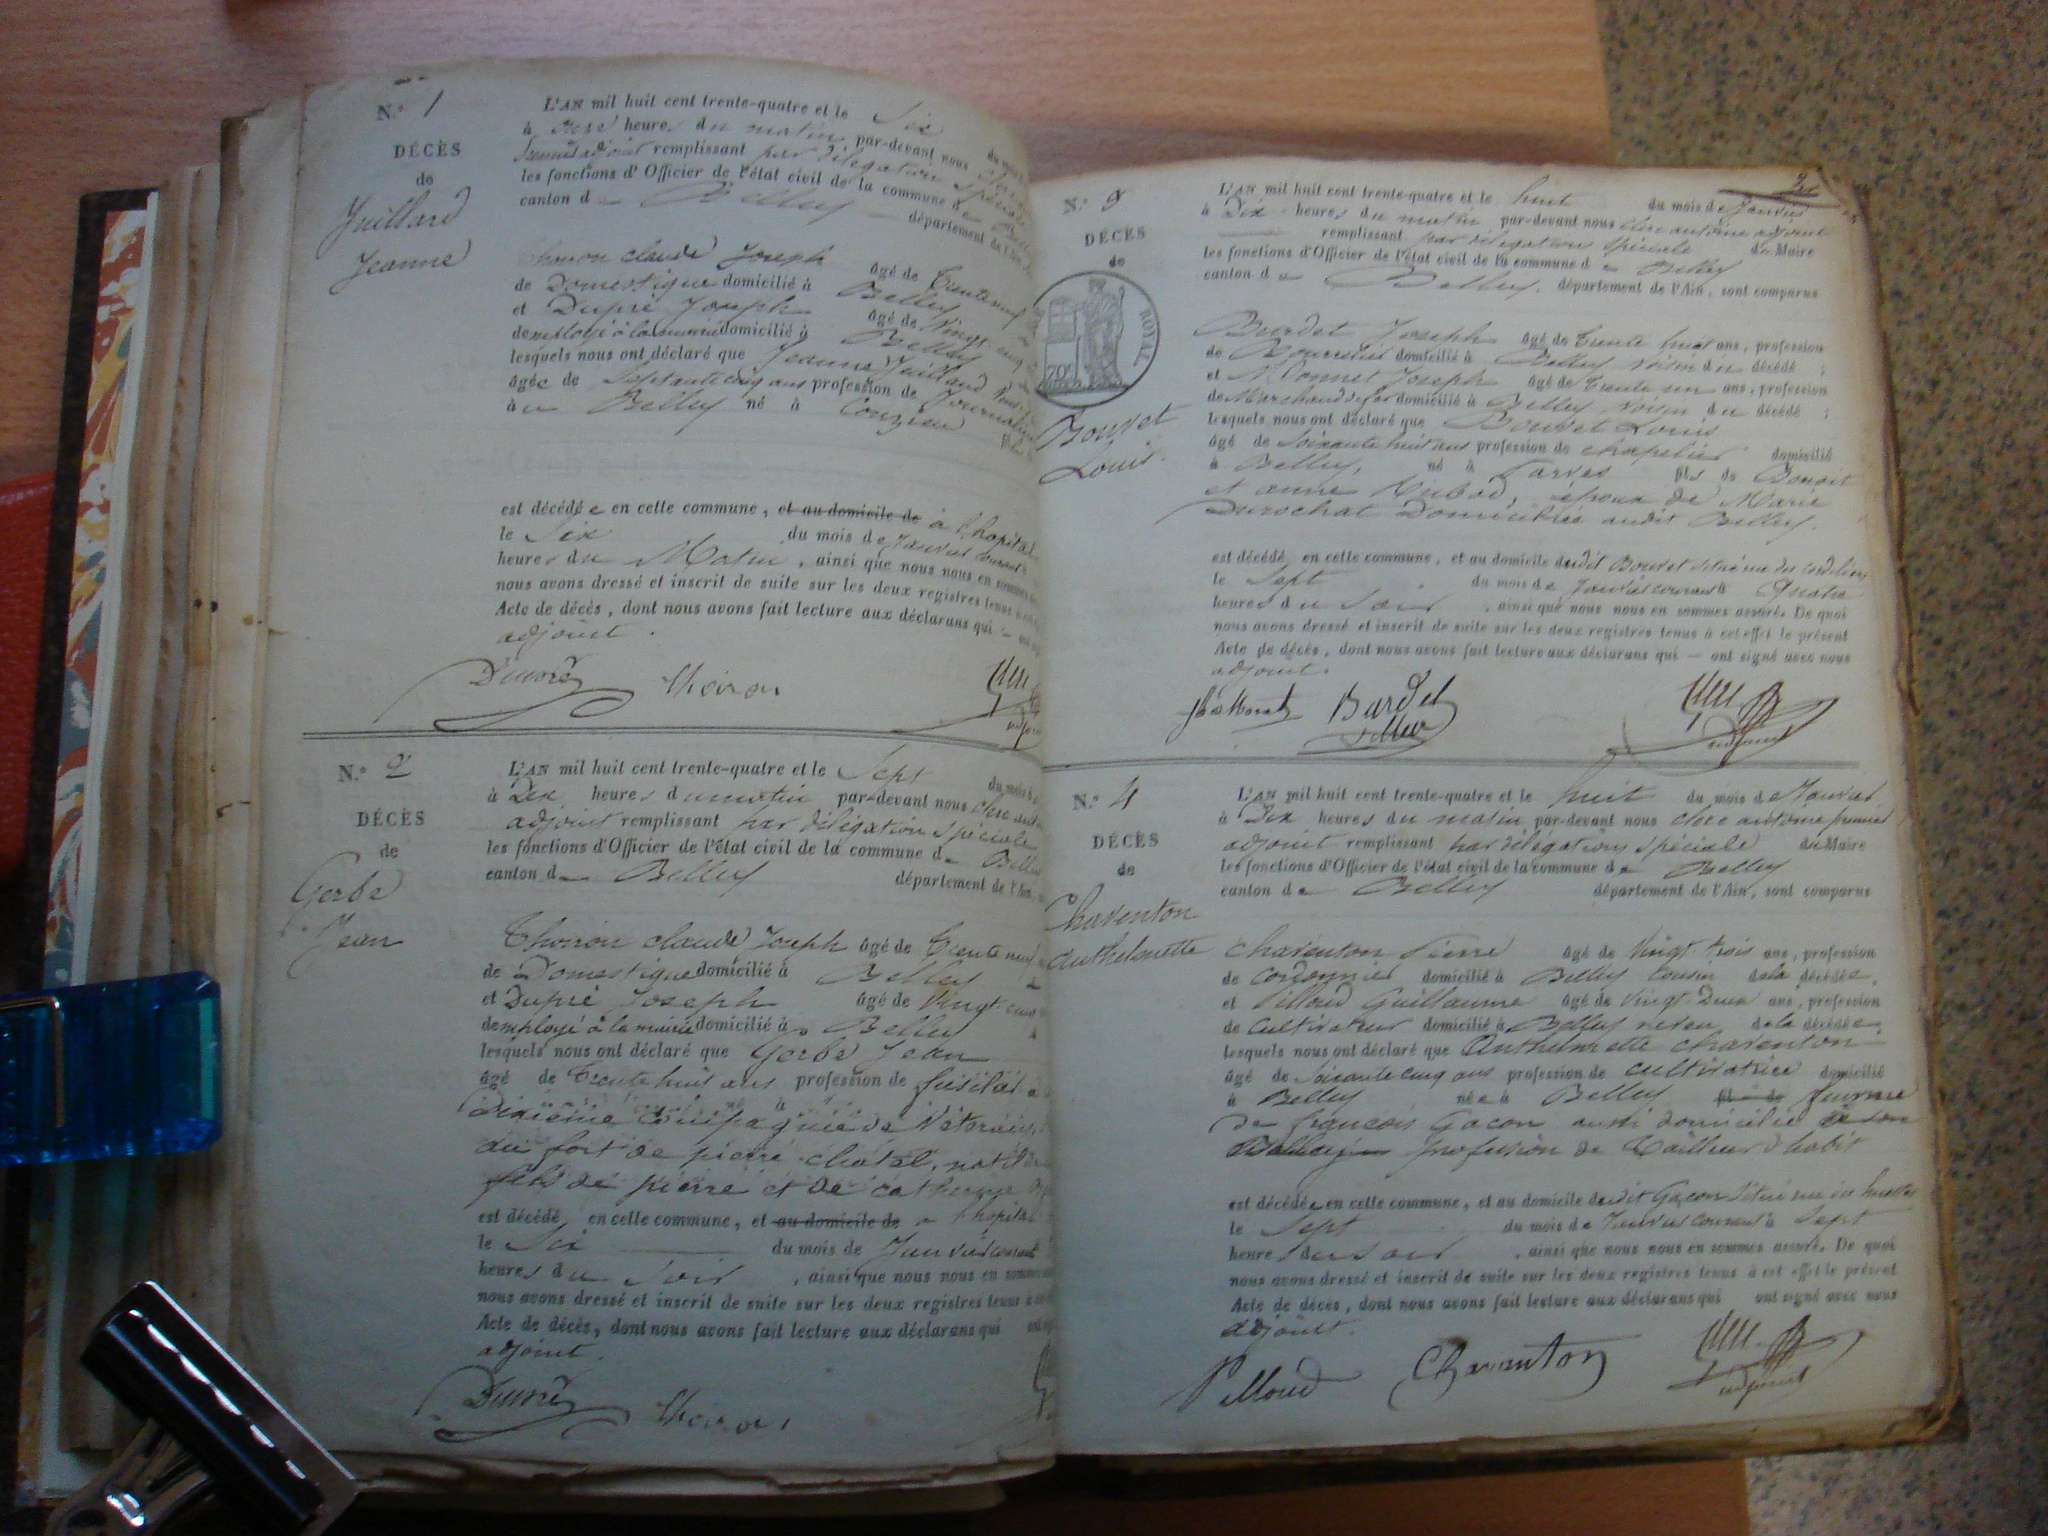 N.º 1
DÉCÈS
de
Juillard
Jeanne
L'AN mil huit cent trente-quatre et le Six du mois
à onze heures du matin par-devant nous
adjoint remplissant par délégation spéciale
les fonctions d'Officier de l'état civil de la commune de
canton de Belley département de l'Ain
Thoiron claude Joseph âgé de Trente neuf
de Domestique domicilié à Belley
et Dupré Joseph âgé de Vingt cinq
de employé à la mairie domicilié à Belley
lesquels nous ont déclaré que Jeanne Juillard
âgée de Septante cinq ans profession de Journalière
à Belley né à Conzieu
est décédée en cette commune, et au domicile de à l'hopital
le Six du mois de Janvier courant
heures du Matin, ainsi que nous nous en sommes
nous avons dressé et inscrit de suite sur les deux registres tenus
Acte de décès, dont nous avons fait lecture aux déclarans qui
adjoint.
Dupré Thoiron
N.º 2
DÉCÈS
de
Gerbe
Jean
L'AN mil huit cent trente-quatre et le Sept du mois
à Dix heures du matin par-devant nous Clerc
adjoint remplissant par délégation spéciale
les fonctions d'Officier de l'état civil de la commune de Belley
canton de Belley département de l'Ain
Thoiron claude Joseph âgé de Trente neuf
de Domestique domicilié à Belley
et Dupré Joseph âgé de Vingt cinq
de employé à la mairie domicilié à Belley
lesquels nous ont déclaré que Gerbe Jean
âgé de Trente huit ans profession de fusilier
Dixième compagnie de Vétérans
au fort de pierre chatel, natif
fils de pierre et de catherine
est décédé en cette commune, et au domicile de à l'hopital
le Six du mois de Janvier courant
heures du Soir, ainsi que nous nous en sommes
nous avons dressé et inscrit de suite sur les deux registres tenus à
Acte de décès, dont nous avons fait lecture aux déclarans qui ont
adjoint.
Dupré Thoiron
N.º 3
DÉCÈS
de
ROYAL
70
Bouvet
Louis.
L'AN mil huit cent trente-quatre et le huit du mois de Janvier
à Dix heures du matin par-devant nous Clerc antoine adjoint
remplissant par délégation spéciale du Maire
les fonctions d'Officier de l'état civil de la commune de Belley
canton de Belley, département de l'Ain, sont comparus
Burdet Joseph âgé de Trente huit ans, profession
de Bourrelier domicilié à Belley voisin du décédé;
et Monnet Joseph âgé de Trente un ans, profession
de Marchand de fer domicilié à Belley voisin du décédé;
lesquels nous ont déclaré que Bouvet Louis
âgé de Soixante huit ans profession de chapelier domicilié
à Belley, né à Parves fils de Benoit
et anne, époux de Marie
Durochat Domiciliée audit Belley.
est décédé en cette commune, et au domicile dudit Bouvet situé rue des cordeliers
le Sept du mois de Janvier courant à Quatre
heures du soir, ainsi que nous nous en sommes assuré. De quoi
nous avons dressé et inscrit de suite sur les deux registres tenus à cet effet le présent
Acte de décès, dont nous avons fait lecture aux déclarans qui ont signé avec nous
adjoint.
Burdet
adjoint
N.º 4
DÉCÈS
de
Charenton
Anthelmette
L'AN mil huit cent trente-quatre et le huit du mois de Janvier
à Dix heures du matin par-devant nous Clerc antoine premier
adjoint remplissant par délégation spéciale du Maire
les fonctions d'Officier de l'état civil de la commune de Belley
canton de Belley département de l'Ain, sont comparus
Charenton Pierre âgé de Vingt trois ans, profession
de Cordonnier domicilié à Belley cousin de la décédée,
et Pilloud Guillaume âgé de Vingt Deux ans, profession
de cultivateur domicilié à Belley neveu de la décédée;
lesquels nous ont déclaré que Anthelmette charenton
âgé de Soixante cinq ans profession de cultivatrice domicilié
à Belley née à Belley fils de femme
de françois Gacon aussi domicilié
profession de Tailleur d'habit
est décédée en cette commune, et au domicile dudit Gacon situé rue des
le Sept du mois de Janvier courant à Sept
heure du soir, ainsi que nous nous en sommes assuré. De quoi
nous avons dressé et inscrit de suite sur les deux registres tenus à cet effet le présent
Acte de décès, dont nous avons fait lecture aux déclarans qui ont signé avec nous
adjoint.
Pilloud Charenton
adjoint